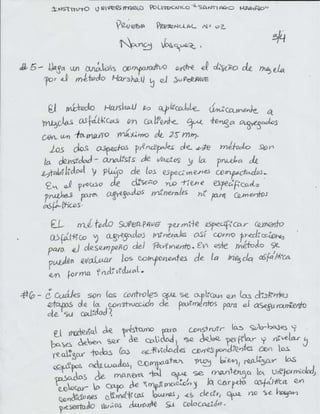 INSTITUTO UNIVERSITARIO POLITÉCNICO "SANTIAGO MARIÑO"
PRUEBA PRESENCIAL Nº 02
Nancy Vásquez.
#5- Haga un análisis comparativo entre el diseño de mezcla
por el método Marshall y el SUPERPAVE
El método Marshall es aplicable únicamente a
mezclas asfálticas en caliente que tenga agregados
con un tamaño máximo de 25 mm.
Los dos aspectos principales de este método son
la densidad - analisis de vacios y la prueba de
estabilidad y flujo de los especimenes compactados.
En el proceso de diseño no tiene especificado
pruebas para agregados minerales ni para cementos
asfálticos.
EL método SUPERPAVE permite especificar cemento
asfáltico y agregados minerales asi como predicciones
para el desempeño del Pavimento. En este método se
pueden evaluar los componentes de la mezcla asfáltica
en forma individual.
#6- ¿Cuáles son los controles que se aplican en las distintas
etapas de la construcción de pavimentos para el aseguramiento
de su calidad?
El material de préstamo para construir las sub-bases y
bases deben ser de calidad, se debe perfilar y nivelar y
realizar todas las actividades correspondientes con los
equipos adecuados, compactar muy bien, realizar las
pasados de manera tal que se mantenga la uniformidad,
colocar la capa de imprimación y la carpeta asfáltica en
condiciones climáticas buenas, es decir, que no se hayan
presentado lluvias durante su colocación.